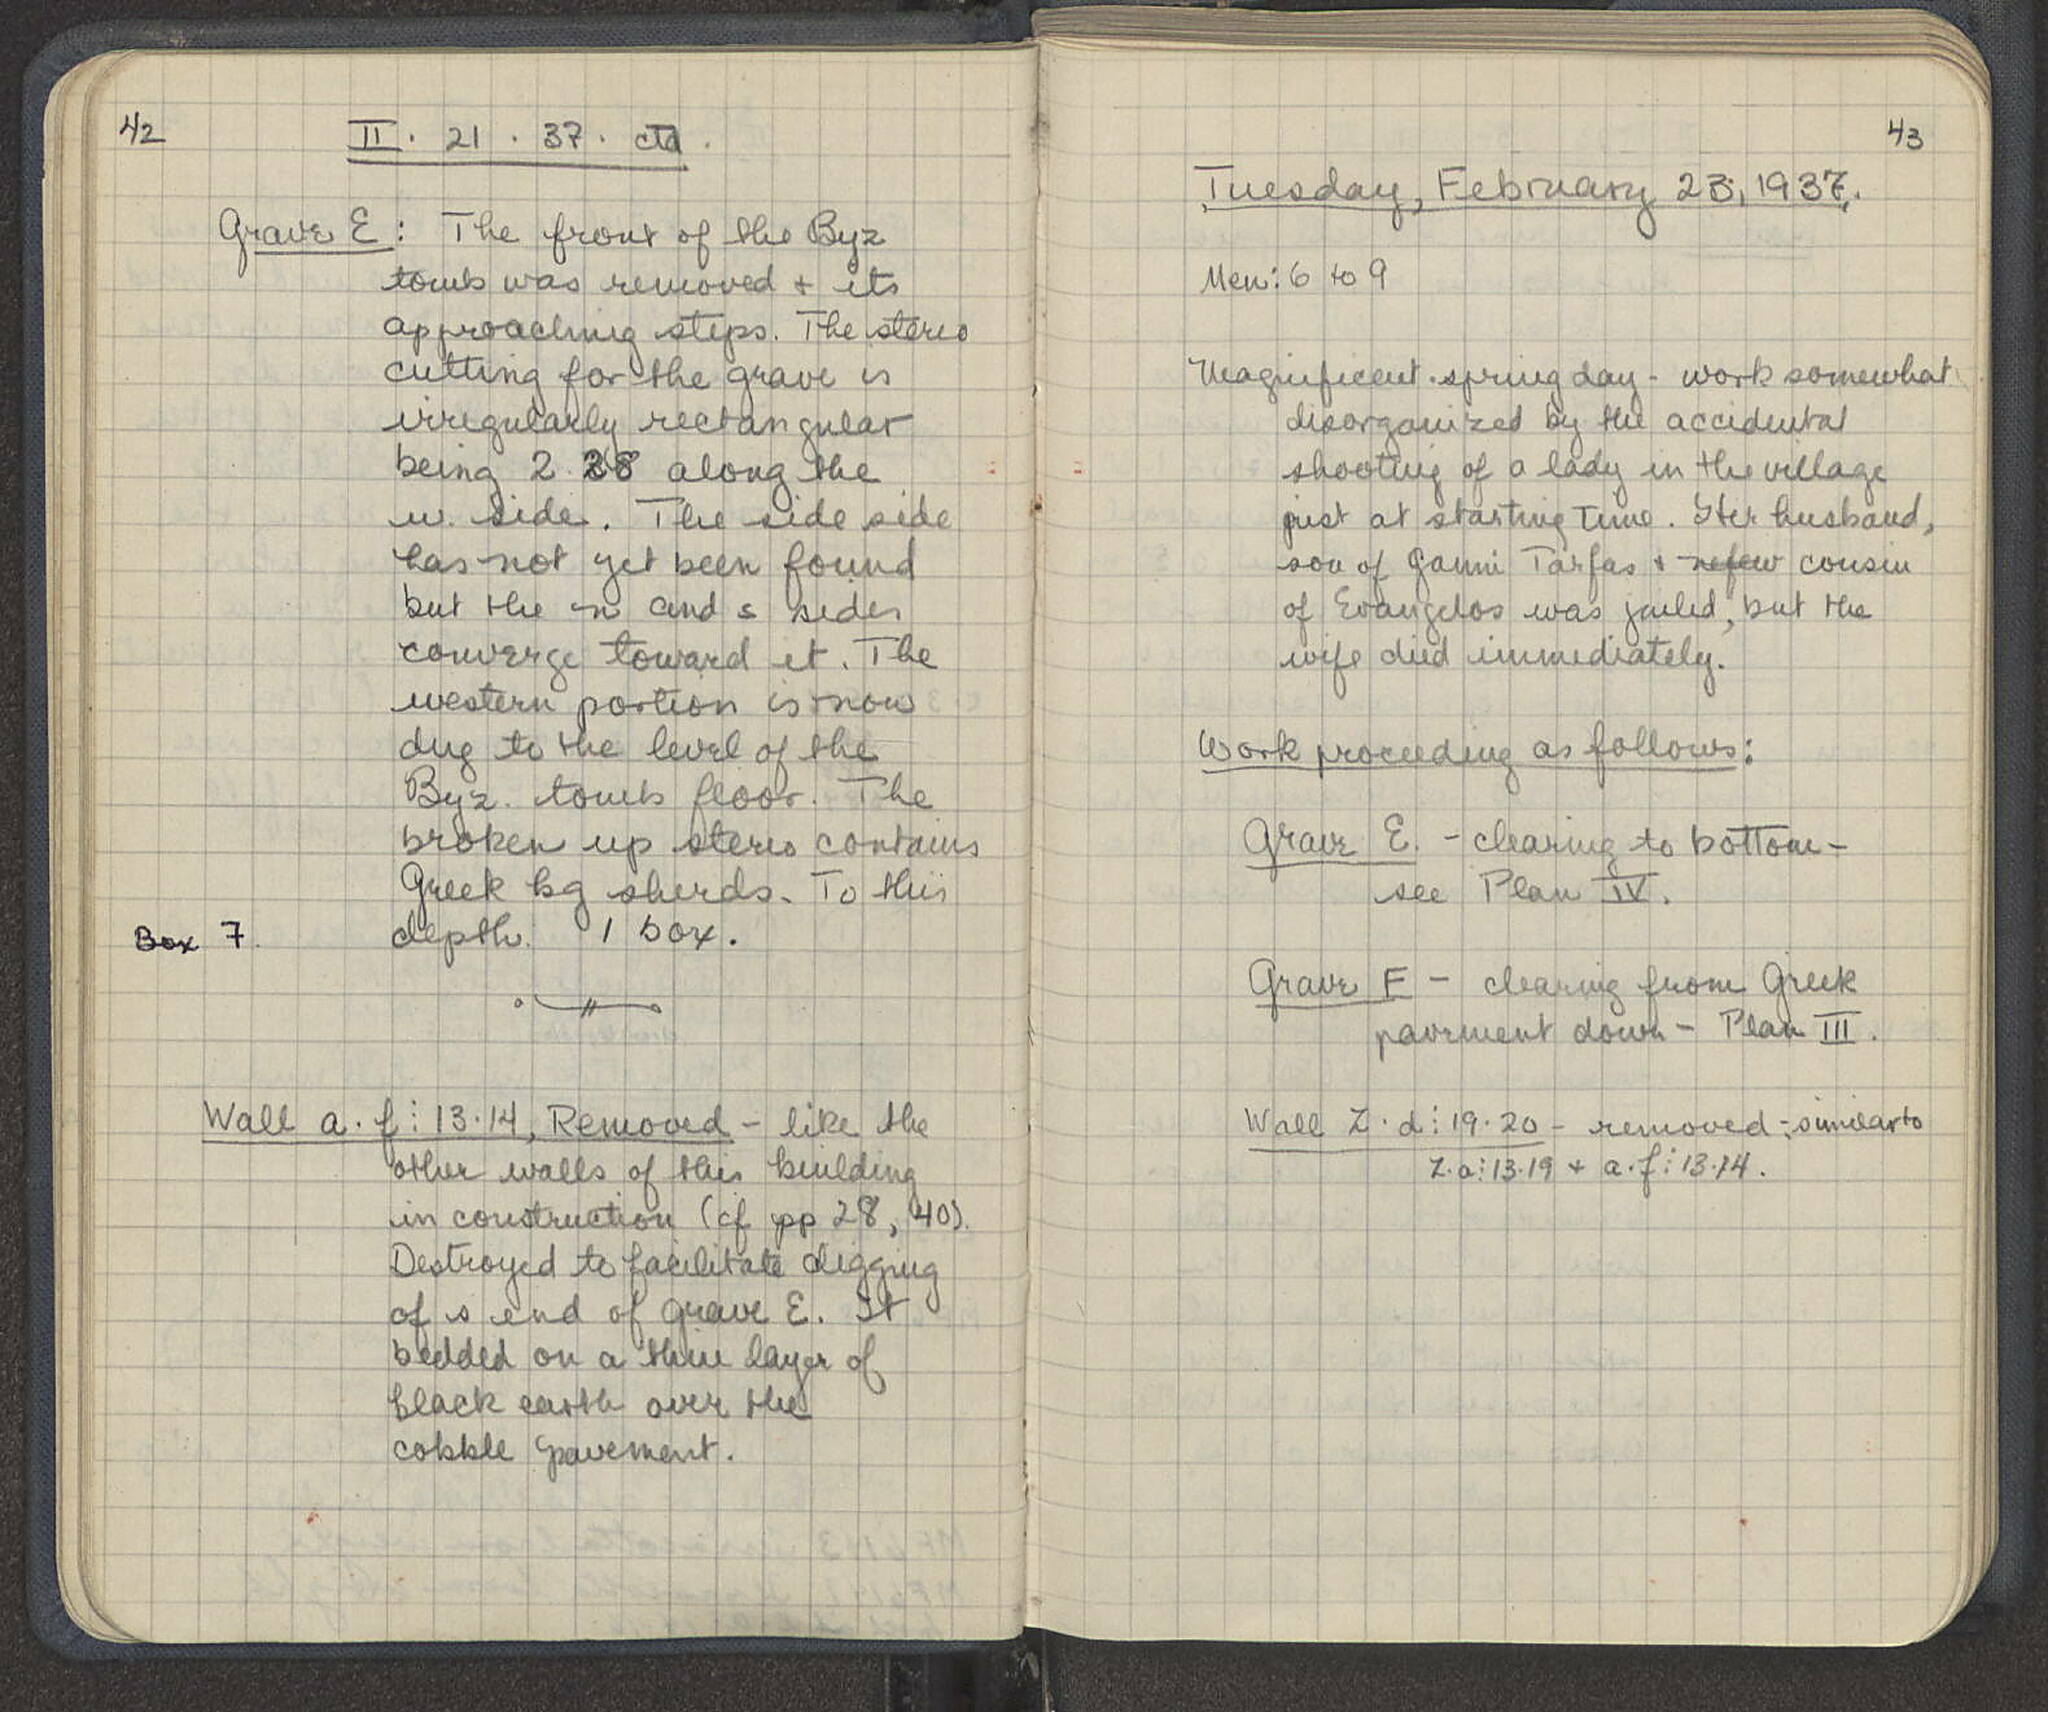 42
II · 21 · 37 · ctd.
Grave E: The front of the Byz
tomb was removed + its
approaching steps. The stereo
cutting for the grave is
irregularly rectangular
being 2.28 along the
w. side. The side side
has not yet been found
but the n and s sides
converge toward it. The
western portion is now
dug to the level of the
Byz. tomb floor. The
broken up stereo contains
Greek bg sherds. To this
Box 7. depth. 1 box.
Wall a·f:13·14, Removed - like the
other walls of this building
in construction (cf pp 28, 40).
Destroyed to facilitate digging
of s end of grave E. It
bedded on a thin layer of
black earth over the
cobble pavement.
43
Tuesday, February 23, 1937.
Men: 6 to 9
Magnificent spring day - work somewhat
disorganized by the accidental
shooting of a lady in the village
just at starting time. Her husband,
son of Ganni Tarfas + nefew cousin
of Evangelos was jailed, but the
wife died immediately.
Work proceeding as follows:
Grave E. - clearing to bottom -
see Plan IV.
Grave F - clearing from Greek
pavement down - Plan III.
Wall Z·d:19·20 - removed - similar to
Z·a:13·19 + a·f:13·14.